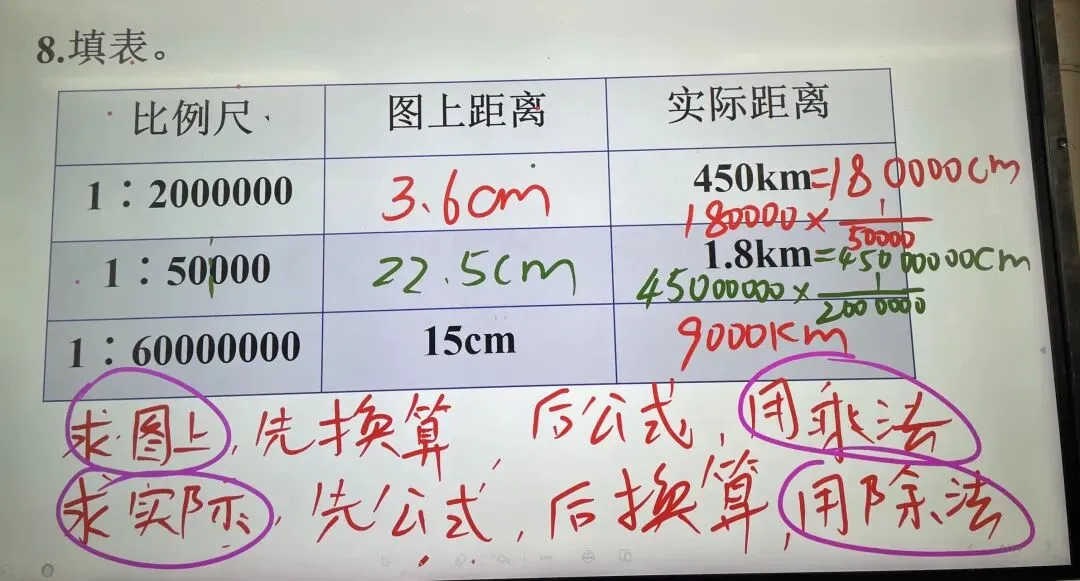 8.填表。
比例尺 图上距离 实际距离
1：2000000 3.6cm 450km=180000cm
180000×1/50000
1：50000 22.5cm 1.8km=45000000cm
45000000×1/2000000
1：60000000 15cm 9000km
求图上,先换算,后公式,用乘法
求实际,先公式,后换算,用除法